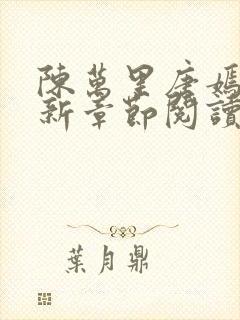 陳萬里唐嫣
新章節閱讀
葉月鼎